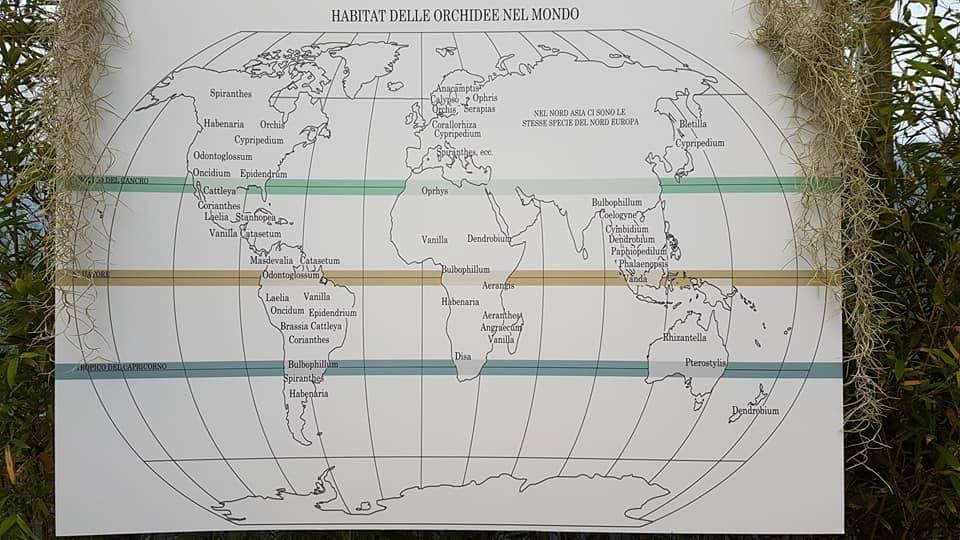 HABITAT DELLE ORCHIDEE NEL MONDO
Spiranthes
Habenaria Orchis
Cypripedium
Odontoglossum
Oncidium Epidendrum
DEL CANCRO
Cattleya
Corianthes
Laelia Stanhopea
Vanilla Catasetum
Masdevalia Catasetum
Odontoglossum
Laelia Vanilla
Oncidum Epidendrum
Brassia Cattleya
Corianthes
TROPICO DEL CAPRICORNO
Bulbophillum
Spiranthes
Habenaria
Anacamptis
Calypso Ophris
Orchis Serapias
Corallorhiza
Cypripedium
Spiranthes, ecc.
Oprhys
Vanilla Dendrobium
Bulbophillum
Aerangis
Habenaria
Aeranthes
Angraecum
Vanilla
Disa
NEL NORD ASIA CI SONO LE
STESSE SPECIE DEL NORD EUROPA
Bletilla
Cypripedium
Bulbophillum
Coelogyne
Cymbidium
Dendrobium
Paphiopedilum
Phalaenopsis
Vanda
Rhizantella
Pterostylis
Dendrobium